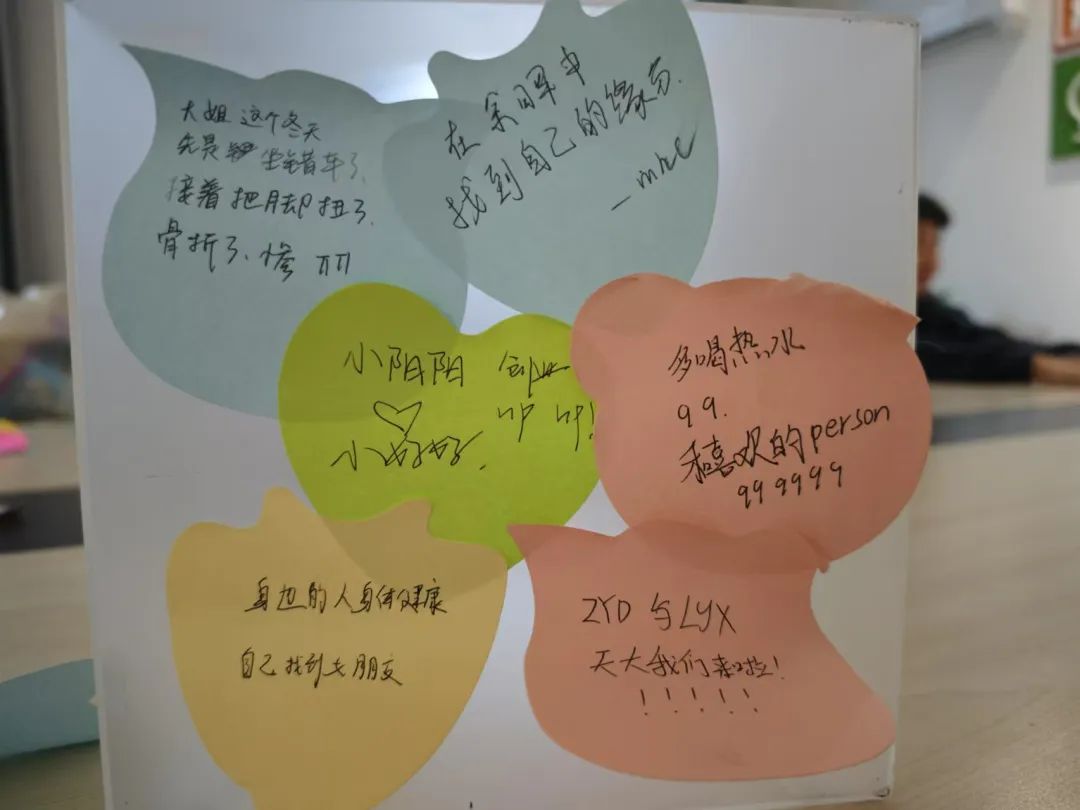 大姐这个冬天
先是坐错车了、
接着把脚扭了、
骨折了、惨 ππ
在余晖中
找到自己的缘分.
小阳阳 创业
♡ 咿咿!
小好好.
多喝热水
99.
和喜欢的person
999999
身边的人身体健康
自己找到女朋友
ZYD 与 LYX
天大我们来啦!
!!!!!